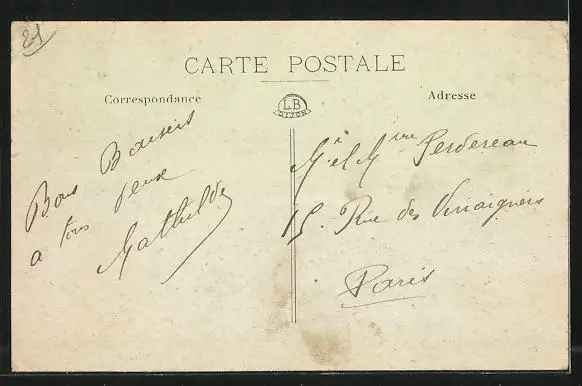 21
CARTE POSTALE
Correspondance
L.B
DIJON
Adresse
Bons Baisers
a tous deux
Mathilde
Mr et Mme Perdereau
15. Rue des Vinaigriers
Paris